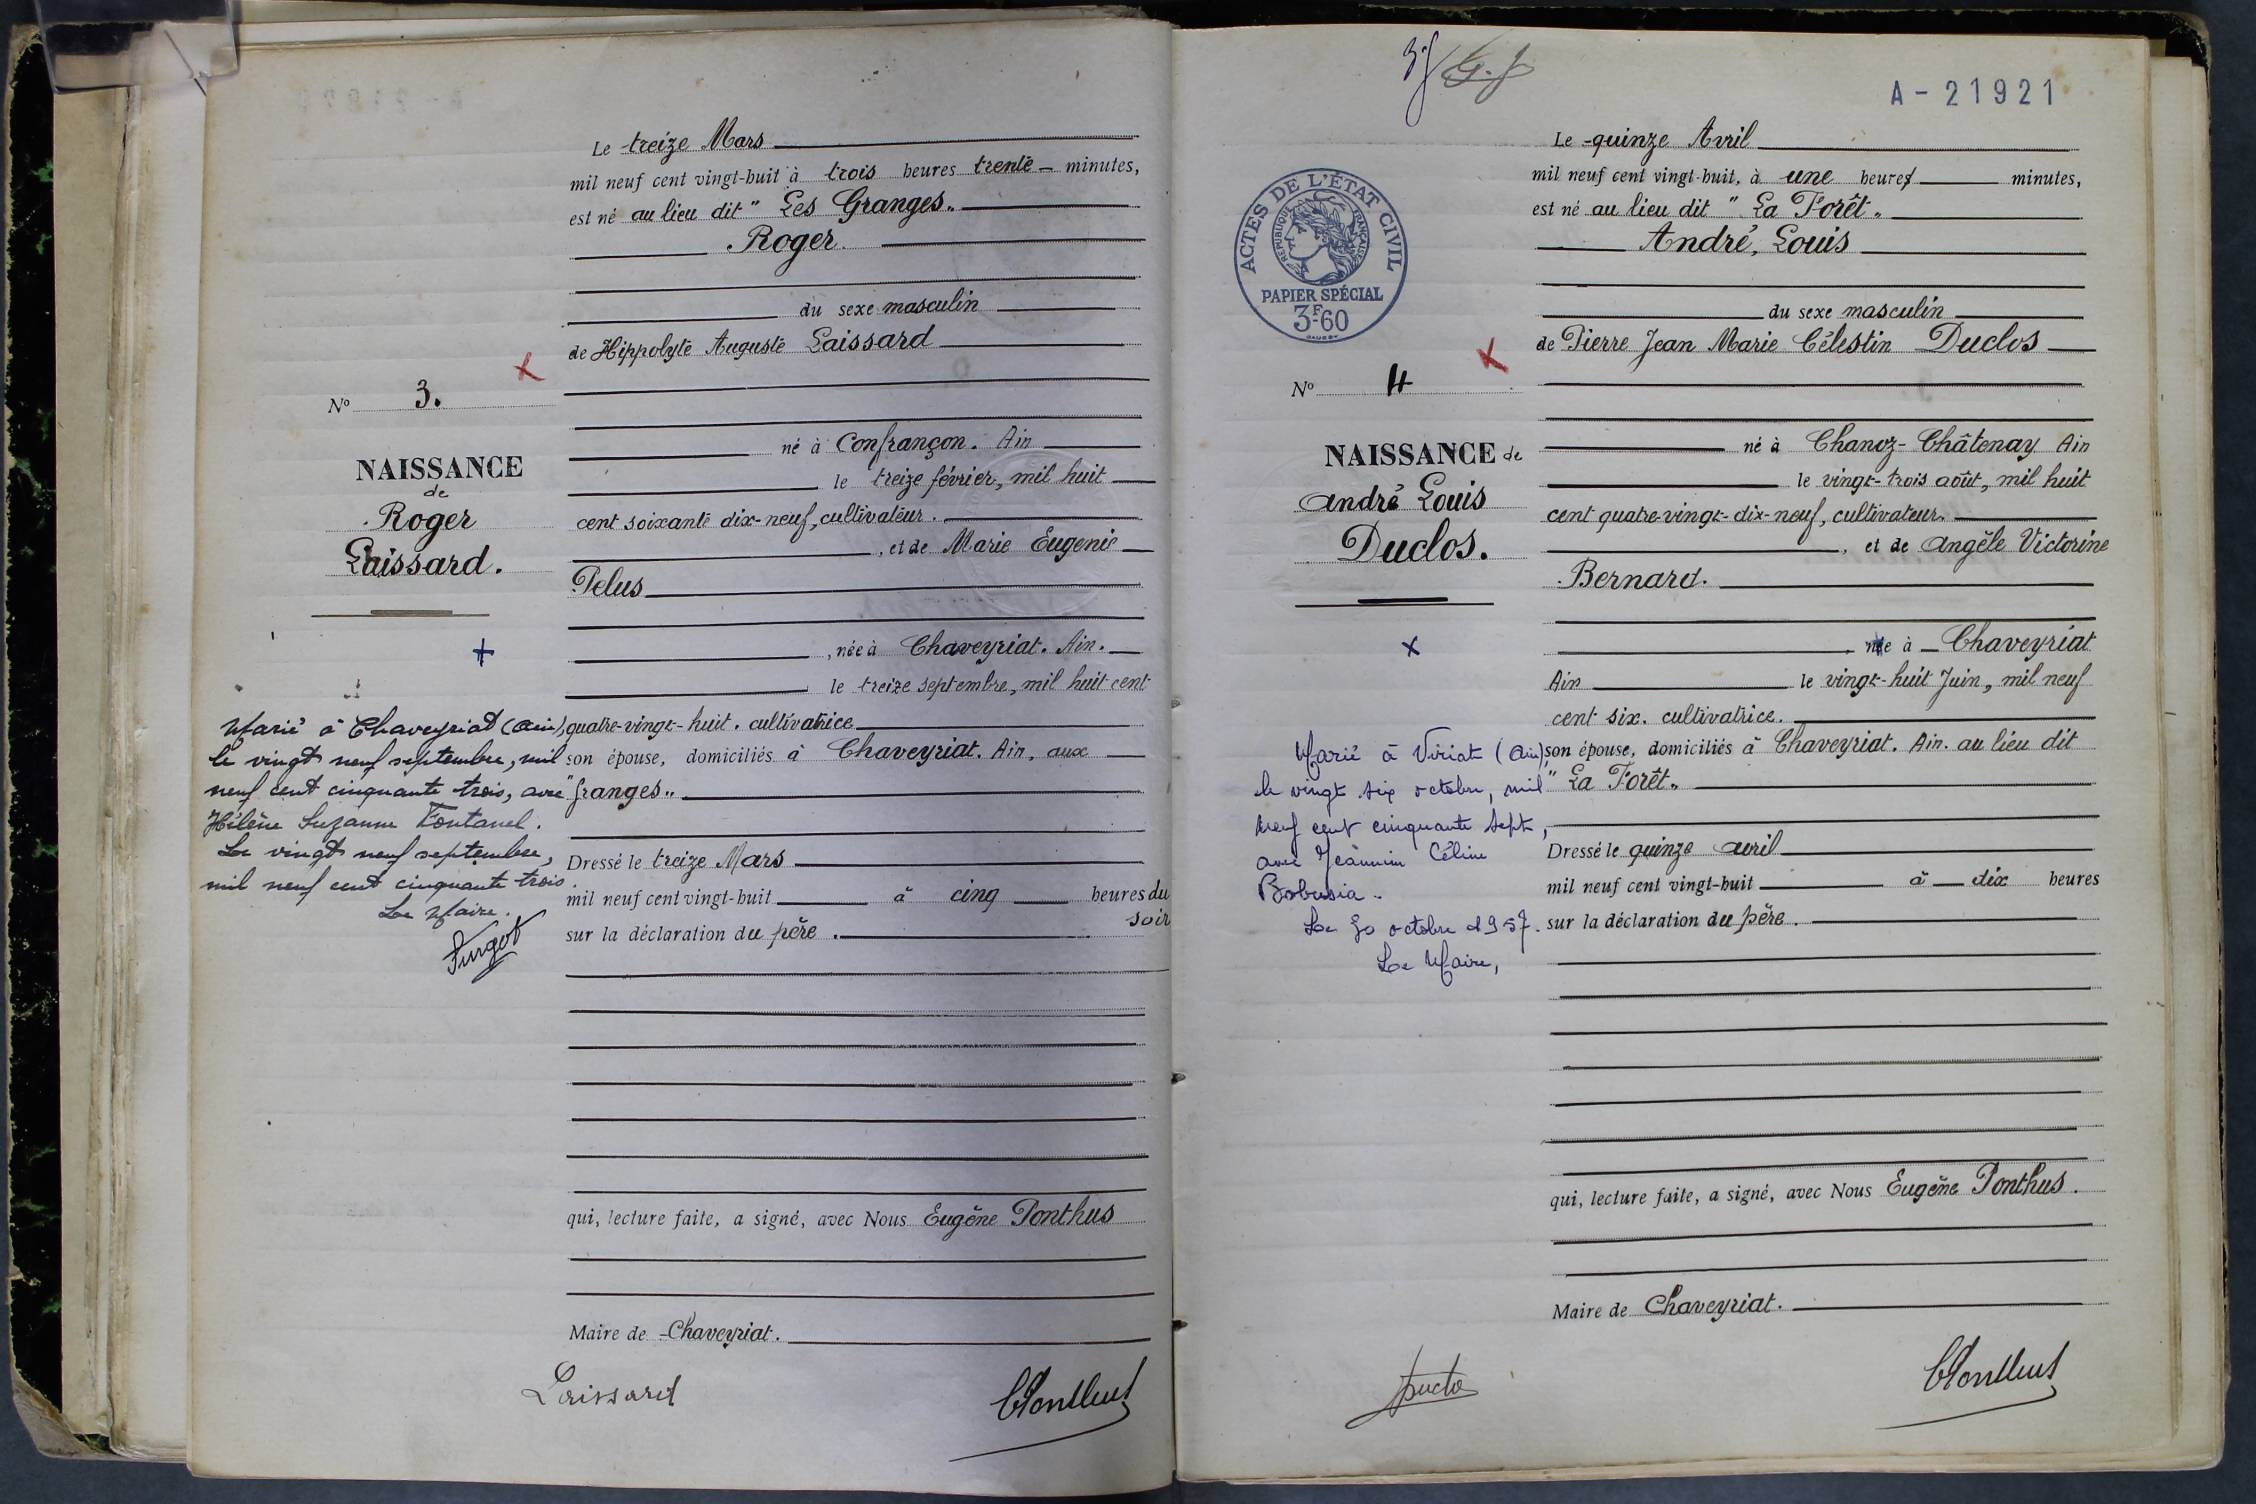 Le treize Mars
mil neuf cent vingt-huit à trois heures trente minutes,
est né au lieu dit " Les Granges "
Roger
du sexe masculin
de Hippolyte Auguste Laissard
né à Confrançon. Ain
le treize février, mil huit
cent soixante dix-neuf, cultivateur.
, et de Marie Eugenie
Pelus
, née à Chaveyriat. Ain.
le treize septembre, mil huit cent
quatre-vingt-huit. cultivatrice
son épouse, domiciliés à Chaveyriat. Ain, aux
"granges"
Dressé le treize Mars
mil neuf cent vingt-huit à cinq heures du
soir
sur la déclaration du père.
qui, lecture faite, a signé, avec Nous Eugène Ponthus
Maire de Chaveyriat.
Laissard
EPonthus
No 3.
NAISSANCE
de
Roger
Laissard.
Marié à Chaveyriat (Ain),
le vingt neuf septembre, mil
neuf cent cinquante trois, avec
Hélène Suzanne Fontanel.
Le vingt neuf septembre,
mil neuf cent cinquante trois
Le Maire.
A - 21921
ACTES DE L'ÉTAT CIVIL
RÉPUBLIQUE FRANÇAISE
PAPIER SPÉCIAL
3F60
Le quinze Avril
mil neuf cent vingt-huit, à une heures minutes,
est né au lieu dit " La Forêt "
André, Louis
du sexe masculin
de Pierre Jean Marie Célestin Duclos
né à Chanoz-Châtenay Ain
le vingt-trois août, mil huit
cent quatre-vingt-dix-neuf, cultivateur.
, et de Angèle Victorine
Bernard.
, née à Chaveyriat
Ain le vingt-huit Juin, mil neuf
cent six. cultivatrice.
son épouse, domiciliés à Chaveyriat. Ain. au lieu dit
" La Forêt "
Dressé le quinze avril
mil neuf cent vingt-huit à dix heures
sur la déclaration du père.
qui, lecture faite, a signé, avec Nous Eugène Ponthus.
Maire de Chaveyriat.
Duclos
EPonthus
No 4
NAISSANCE de
André Louis
Duclos.
Marié à Viriat (Ain),
le vingt six octobre, mil
neuf cent cinquante sept,
avec Céline
Le 30 octobre 1957.
Le Maire,